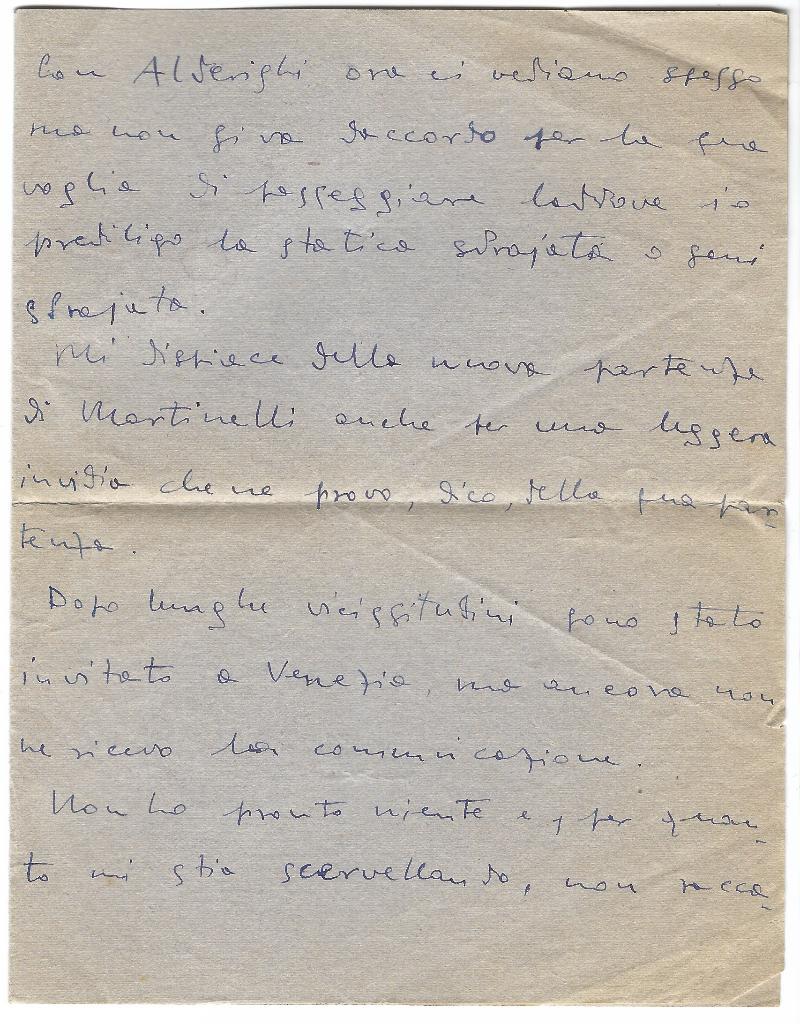 Con Alderighi ora ci vediamo spesso
ma non si va daccordo per la sua
voglia di passeggiare laddove io
prediligo la statica sdrajata o semi
sdrajata.
Mi dispiace della nuova partenza
di Martinelli anche per una leggera
invidia che ne provo, dico, della sua par-
tenza.
Dopo lunghe vicissitudini sono stato
invitato a Venezia, ma ancora non
ne ricevo la comunicazione.
Non ho pronto niente e, per quan-
to mi stia scervellando, non racca-